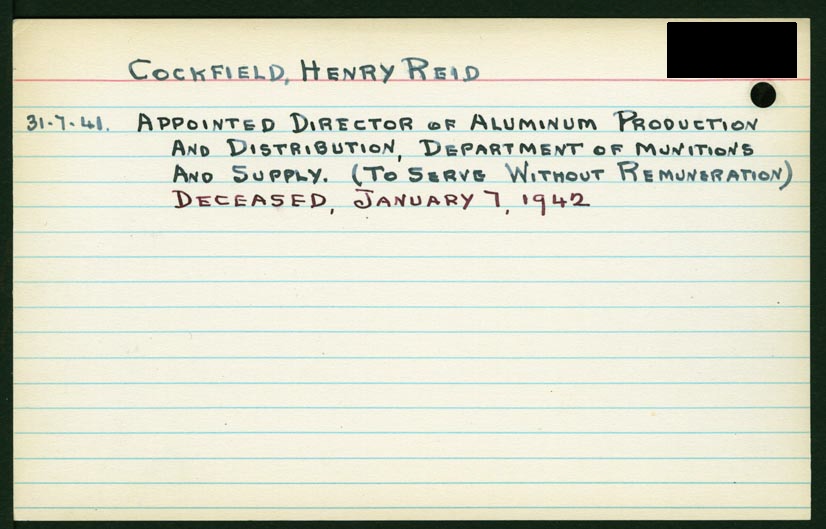 COCKFIELD, HENRY REID
31-7-41. APPOINTED DIRECTOR OF ALUMINUM PRODUCTION
AND DISTRIBUTION, DEPARTMENT OF MUNITIONS
AND SUPPLY. (TO SERVE WITHOUT REMUNERATION)
DECEASED, JANUARY 7, 1942